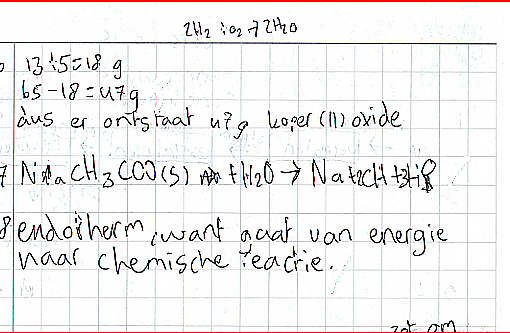 2H₂ + O₂ → 2H₂O
13+5=18 g
65-18=47g
dus er ontstaat 47g koper(II)oxide
7 NaCH₃COO(s) + H₂O →
8 endotherm, want gaat van energie
naar chemische reactie.